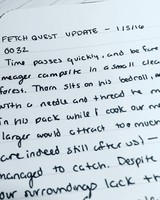 FETCH QUEST UPDATE - 1/5/16
0032
Time passes quickly, and before
meager campsite in a small clea
forest. Thorn sits on his bedroll, m
with a needle and thread he m
in his pack while I cook our m
larger would attract too much
are indeed still after us) —
managed to catch. Despite
our surroundings lack th